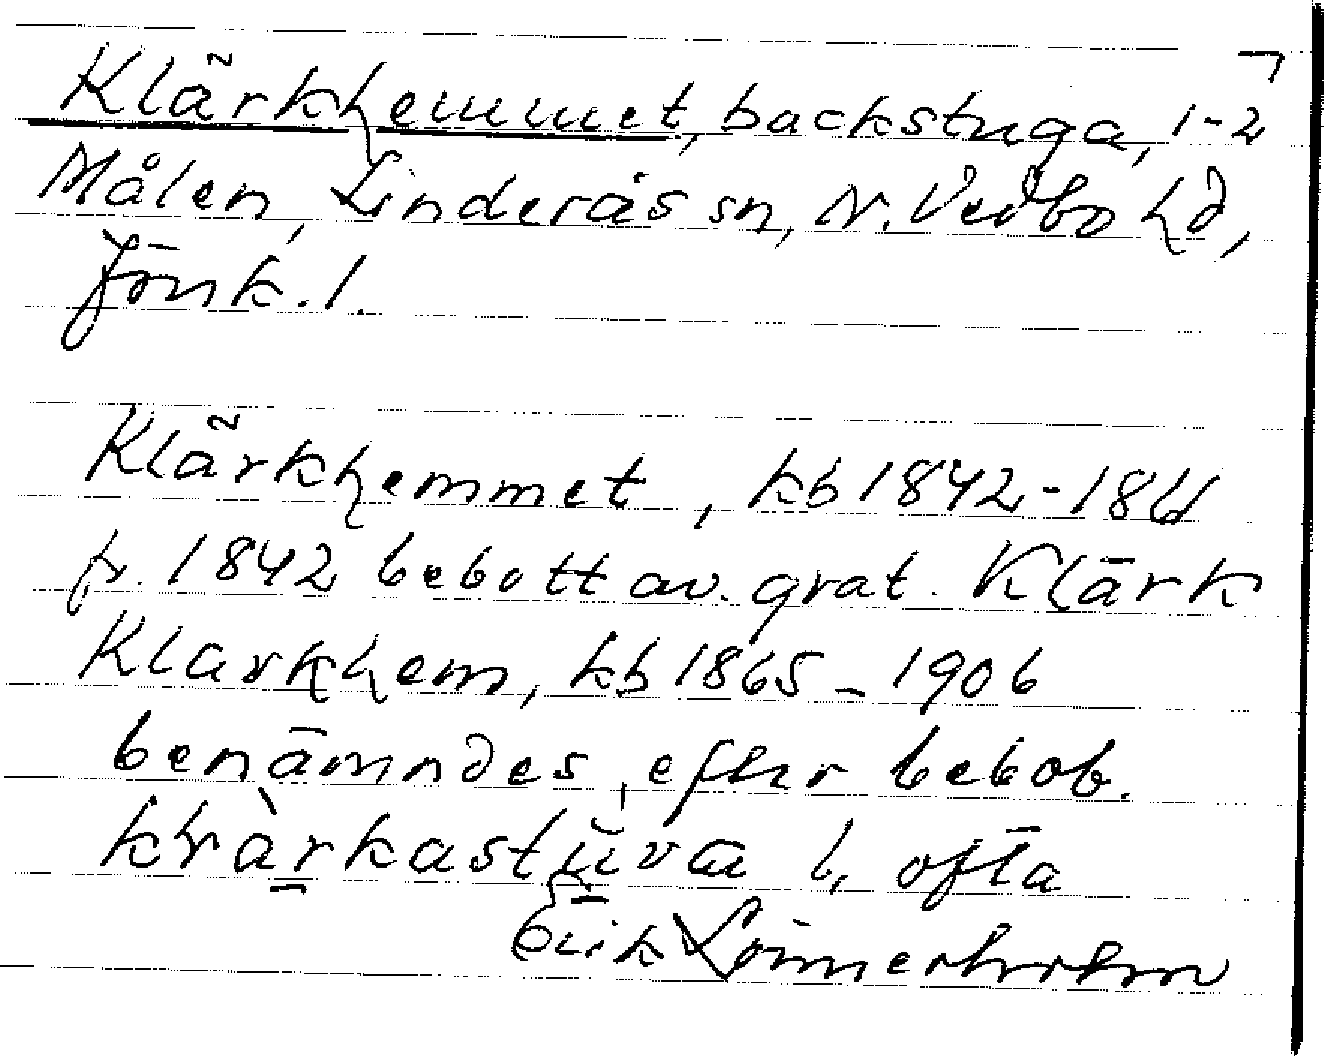 Klärkhemmet, backstuga, 1-2
Målen, Linderås sn, N. Vedbo hd,
Jönk. l.
Klärkhemmet, kb 1842-1861
fr. 1842 bebott av grat. Klärk
Klarkhem, kb 1865-1906
benämndes, efter bebob.
ofta
Erik Lönnerholm